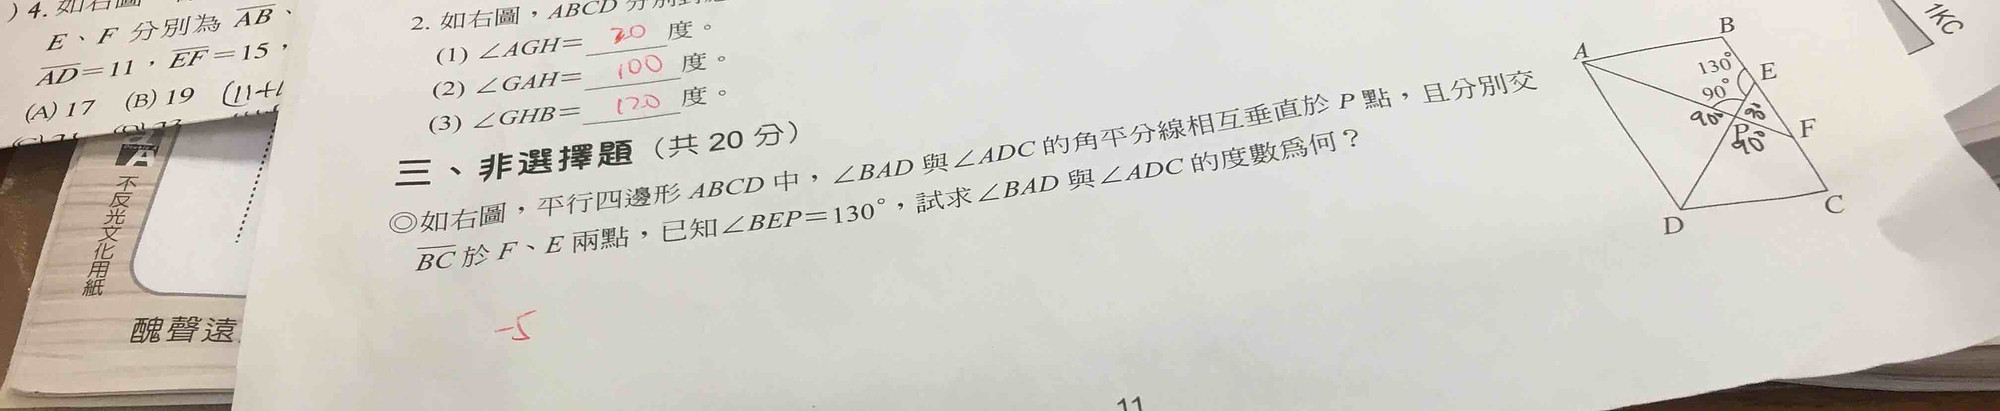 )4. 如右圖
E、F 分別為 AB、
AD=11，EF=15，
(A) 17 (B) 19 (11+
2. 如右圖，ABCD 分別
(1) ∠AGH= 20 度。
(2) ∠GAH= 100 度。
(3) ∠GHB= 120 度。
三、非選擇題（共 20 分）
◎如右圖，平行四邊形 ABCD 中，∠BAD 與∠ADC 的角平分線相互垂直於 P 點，且分別交
BC 於 F、E 兩點，已知∠BEP=130°，試求∠BAD 與∠ADC 的度數為何？
A
B
130°
E
90°
90°
90°
P
F
90°
D
C
-5
11
1KC
A
不反光文化用紙
醜聲遠